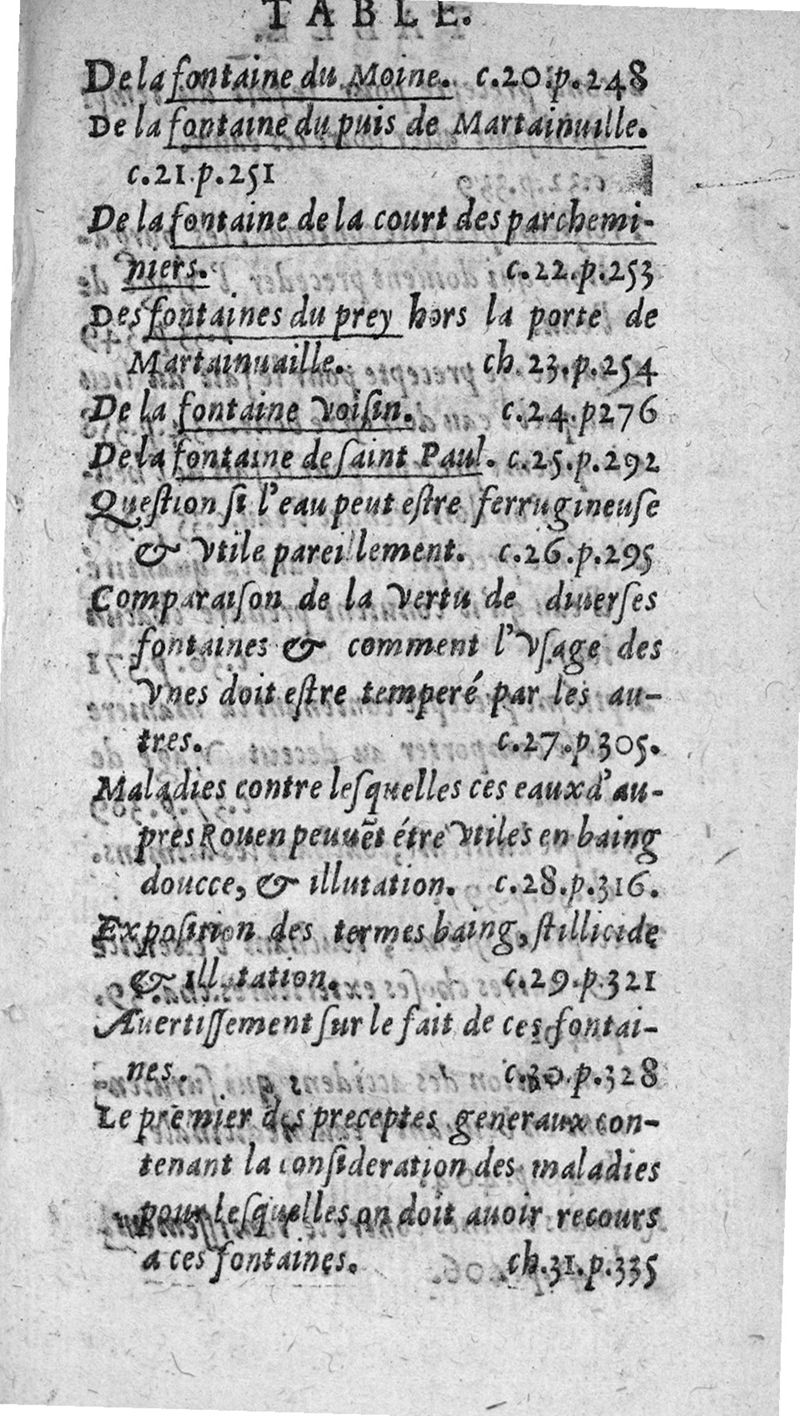 TABLE.
De la fontaine du Moine. c.20.p.248
De la fontaine du puis de Martainuille.
c.21.p.251
De la fontaine de la court des parchemi-
niers. c.22.p.253
Des fontaines du prey hors la porte de
Martainuaille. ch.23.p.254
De la fontaine Voisin. c.24.p276
De la fontaine de saint Paul. c.25.p.292
Question si l'eau peut estre ferrugineuse
& Vtile pareillement. c.26.p.295
Comparaison de la Vertu de diuerses
fontaines & comment l'Vsage des
Vnes doit estre temperé par les au-
tres. c.27.p.305.
Maladies contre lesquelles ces eaux d'au-
pres Rouen peuuẽt étre Vtiles en baing
doucce, & illutation. c.28.p.316.
Exposition des termes baing, stillicide
& illutation. c.29.p.321
Auertissement sur le fait de ces fontai-
nes. c.30.p.328
Le premier des preceptes generaux con-
tenant la consideration des maladies
pour lesquelles on doit auoir recours
a ces fontaines. ch.31.p.335